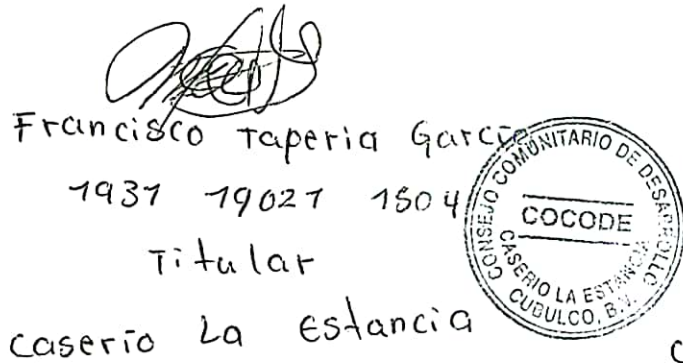 Francisco Taperia García
1931 19021 1504
Titular
Caserio La Estancia
CONSEJO COMUNITARIO DE DESARROLLO
COCODE
CASERIO LA ESTANCIA
CUBULCO, B.V.
C